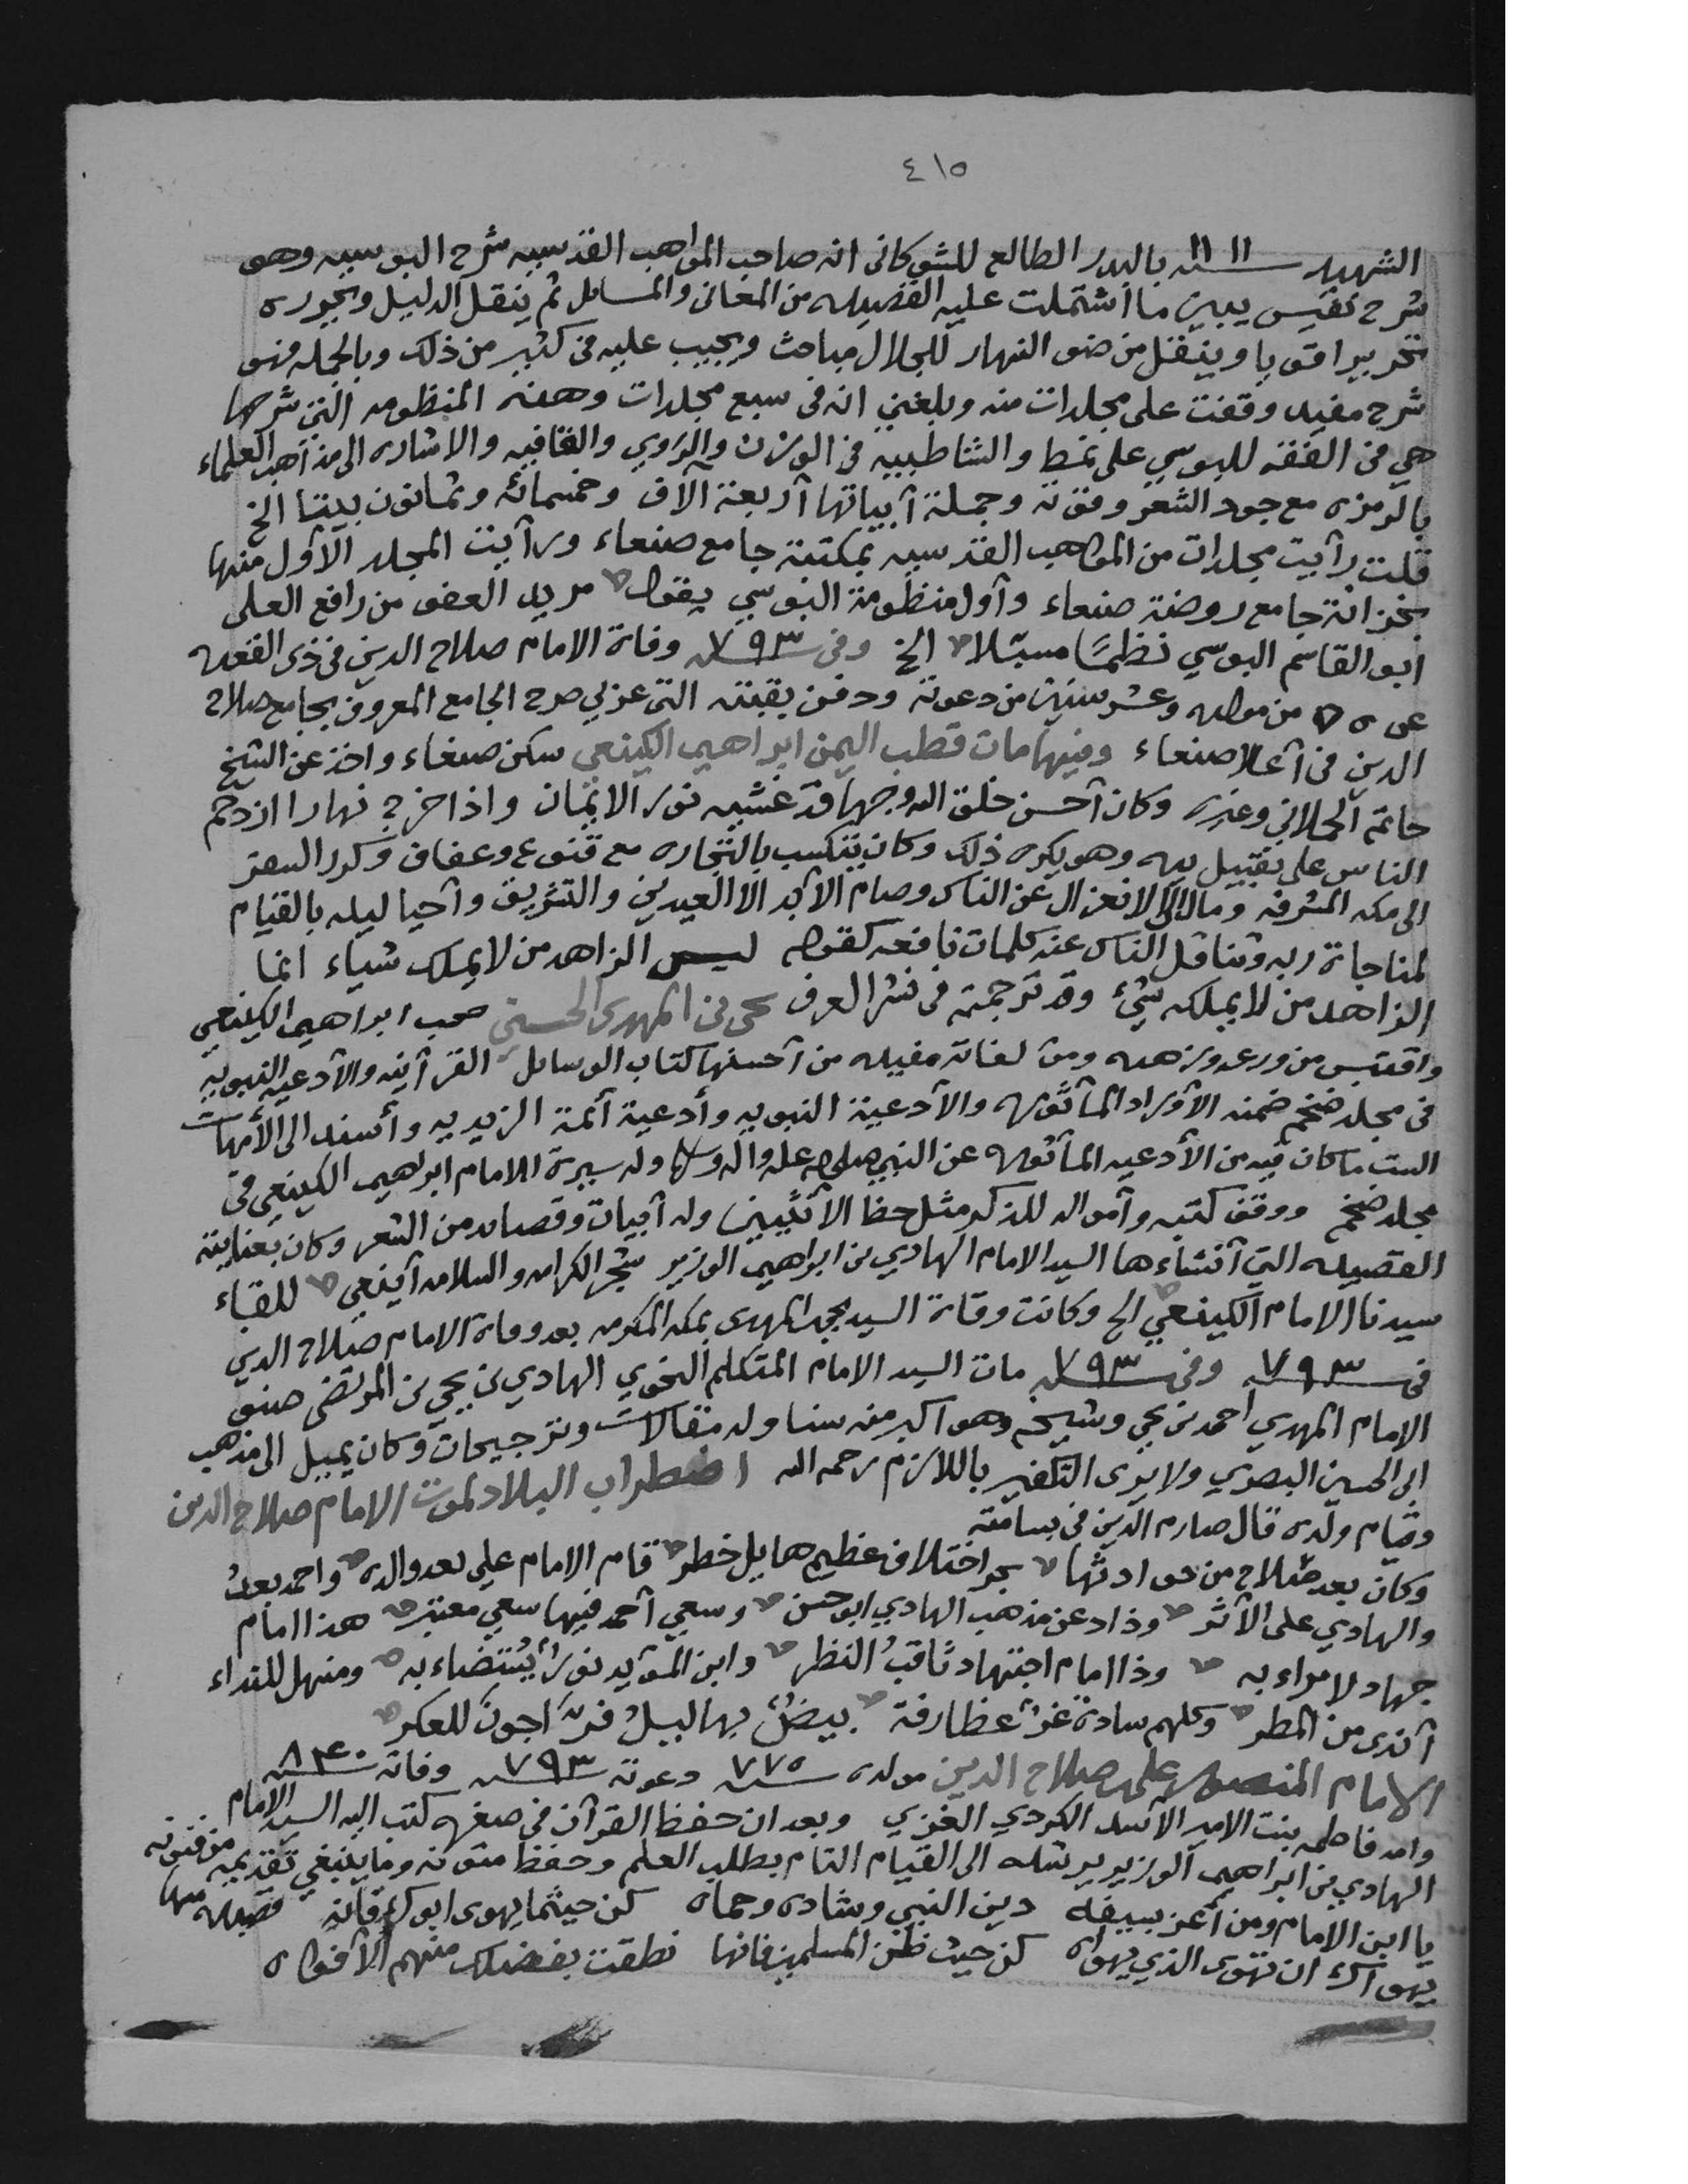 ٤١٥
الشهيد ١١١١ بالبدر الطالع للشوكاني انه صاحب المواهب القدسيه شرح البوسيه وهو
شرح نفيس يبين ما أشتملت عليه القصيده من المعاني والمسائل ثم ينقل الدليل ويحرره
تحريرا قويا وينقل من ضوء النهار للجلال مباحث ويجيب عليه في كثير من ذلك وبالجمله فهو
شرح مفيد وقفت على مجلدات منه وبلغني انه في سبع مجلدات وهذه المنظومه التي شرحها
هي في الفقه للبوسي على نمط والشاطبيه في الوزن والروي والقافيه والاشاره الى مذاهب العلماء
بالرمز مع جوده الشعر وقوته وجملة آبياتها آربعة آلآف وخمسمائه وثمانون بيتا الخ
قلت رآيت مجلدات من المواهب القدسيه بمكتبة جامع صنعاء ورآيت المجلد الآول منها
بخزانة جامع روضة صنعاء وآول منظومة البوسي يقول مريد العفو من رافع العلى
ابو القاسم البوسي نظمًا مسبّلا الخ وفي سنه ٧٩٣ وفاة الامام صلاح الدين في ذي القعده
عن من مولده وعشر سنين من دعوته ودفن بقبته التي غربي صرح الجامع المعروف بجامع صلاح
الدين في آعلا صنعاء وفيها مات قطب اليمن ابراهيم الكينعي سكن صنعاء واخذ عن الشيخ
حاتم الحملاني وغيره وكان آحسن خلق الله وجها قد غشيه نور الايمان واذا خرج نهارا ازدحم
الناس على تقبيل يده وهو يكره ذلك وكان يتكسب بالتجاره مع قنوع وعفاف وكرر السفر
الى مكه المشرفه ومال الى الانعزال عن الناس وصام الآبد الا العيدين والتشريق وآحيا ليله بالقيام
لمناجاة ربه وتناقل الناس عنه كلمات نافعه كقوله ليس الزاهد من لا يملك شياء انما
الزاهد من لا يملكه شيء وقد ترجمته في نشر العرف يحيى بن المهدي الحسيني صحب ابراهيم الكينعي
واقتبس من ورعه وزهده ومؤلفاته مفيده من آحسنها كتاب الوسائل القرآنيه والآدعيه النبويه
في مجلد ضخم ضمنه الآوراد المآثوره والآدعية النبويه وأدعية آئمة الزيديه وأسند الى الأمهات
الست ما كان فيه من الأدعيه المآثوره عن النبي صلى الله عليه واله وسلم وله سيرة الامام ابراهيم الكينعي في
مجلد ضخم ووقف كتبه وآمواله للذكر مثل حظ الآنثيين وله آبيات وقصائد من الشعر وكان بعنايته
القصيده التي آنشاءها السيد الامام الهادي بن ابراهيم الوزير شجر الكرامه والسلامه آينعي للقاء
سيدنا الامام الكينعي الخ وكانت وفاة السيد يحيى المهدي بمكه المكرمه بعد وفاة الامام صلاح الدين
في سنه ٧٩٣ وفي سنه ٧٩٣ مات السيد الامام المتكلم النحوي الهادي بن يحيى بن المرتضى صنو
الامام المهدي احمد بن يحيى وشيخه وهو اكبر منه سنا وله مقالات وترجيحات وكان يميل الى مذهب
ابي الحسين البصري ولا يرى التكفير باللازم رحمه الله اضطراب البلاد لموت الامام صلاح الدين
وقيام ولده قال صارم الدين في بسامته
وكان بعد صلاح من حوادثها بحر اختلاف عظيم هايل خطر قام الامام علي بعد والده واحمد بعدُ
والهادي على الآثر وذاد عن مذهب الهادي ابو حسن وسعي آحمد فيها سعي معتبر هذا امام
جهاد لا مراء به وذا امام اجتهاد ثاقبُ النظر وابن المؤيد نورٌ يُستضاء به ومنهل للنداء
آندى من المطر وكلهم سادة غرٌ غطارفة بيضٌ بهاليلُ فرّاجون للعكر
الامام المنصور علي صلاح الدين مولده سنه ٧٧٥ دعوته سنه ٧٩٣ وفاته سنه ٨٤٠
وامه فاطمه بنت الامير الآسد الكردي الغزي وبعد ان حفظ القرآن في صغره كتب اليه السيد الامام
الهادي بن ابراهيم الوزير يرشده الى القيام التام بطلب العلم وحفظ متونه وما ينبغي تقديمه من فنونه
يا ابن الامام ومن آعز بسيفه دين النبي وشاده وحماه كن حيثما يهوى ابوك فانه قصيده منها
يهواك ان تهوى الذي يهواه كن حيث ظن المسلمين فانها نطقت بفضلك منهم الآفواه